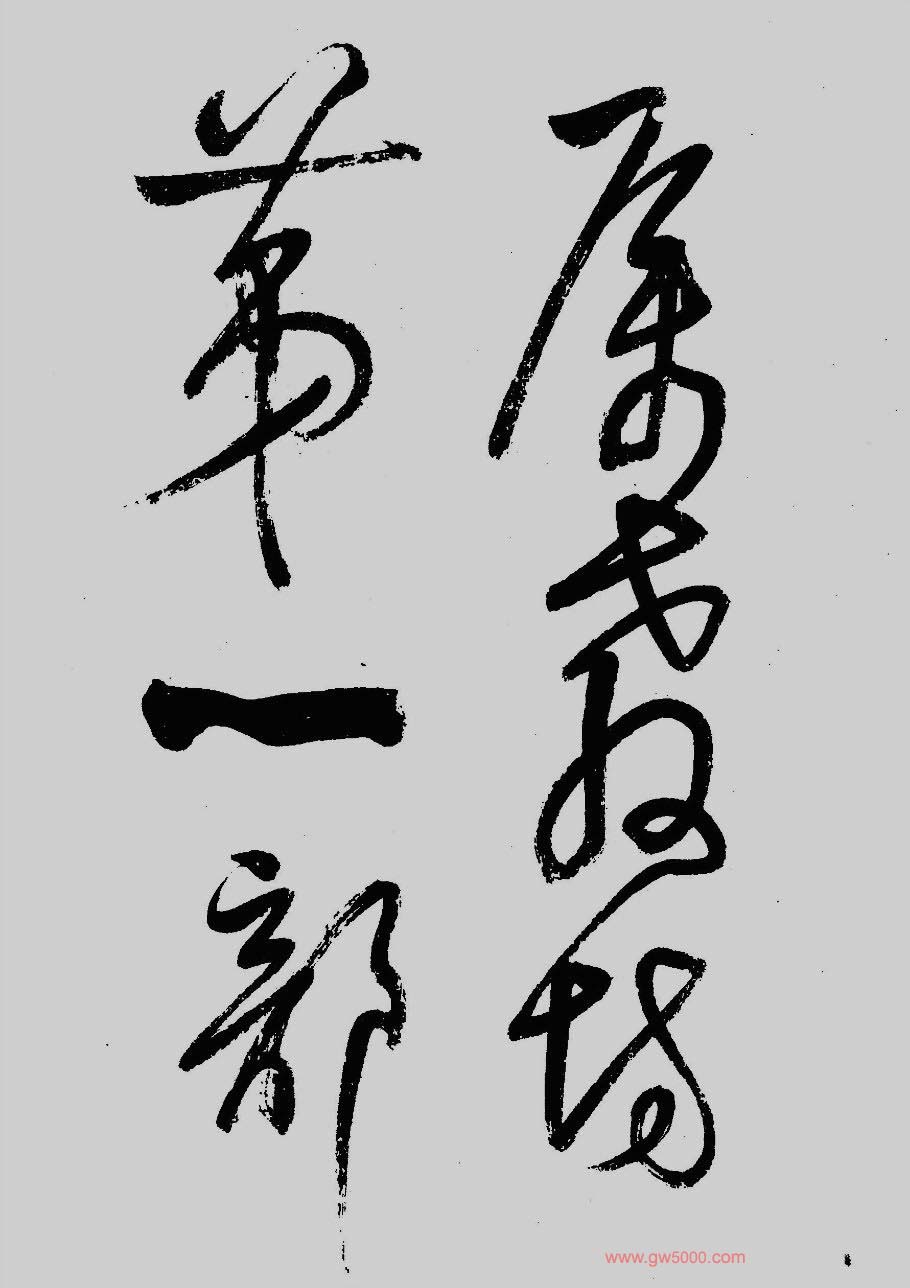 属教坊
第一部
www.gw5000.com